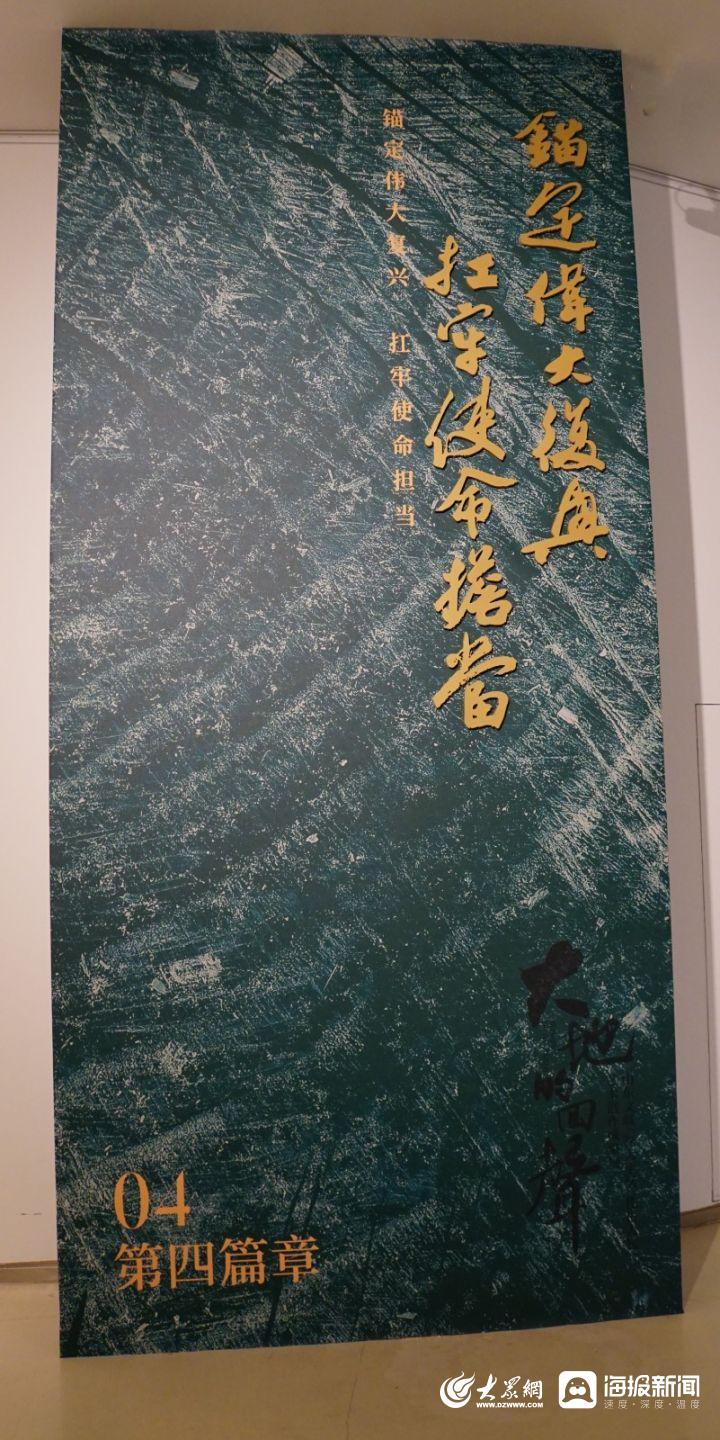 錨定偉大復興
扛牢使命擔當
锚定伟大复兴 扛牢使命担当
大地的回聲
04
第四篇章
大眾網
WWW.DZWWW.COM
海报新闻
速度·深度·温度